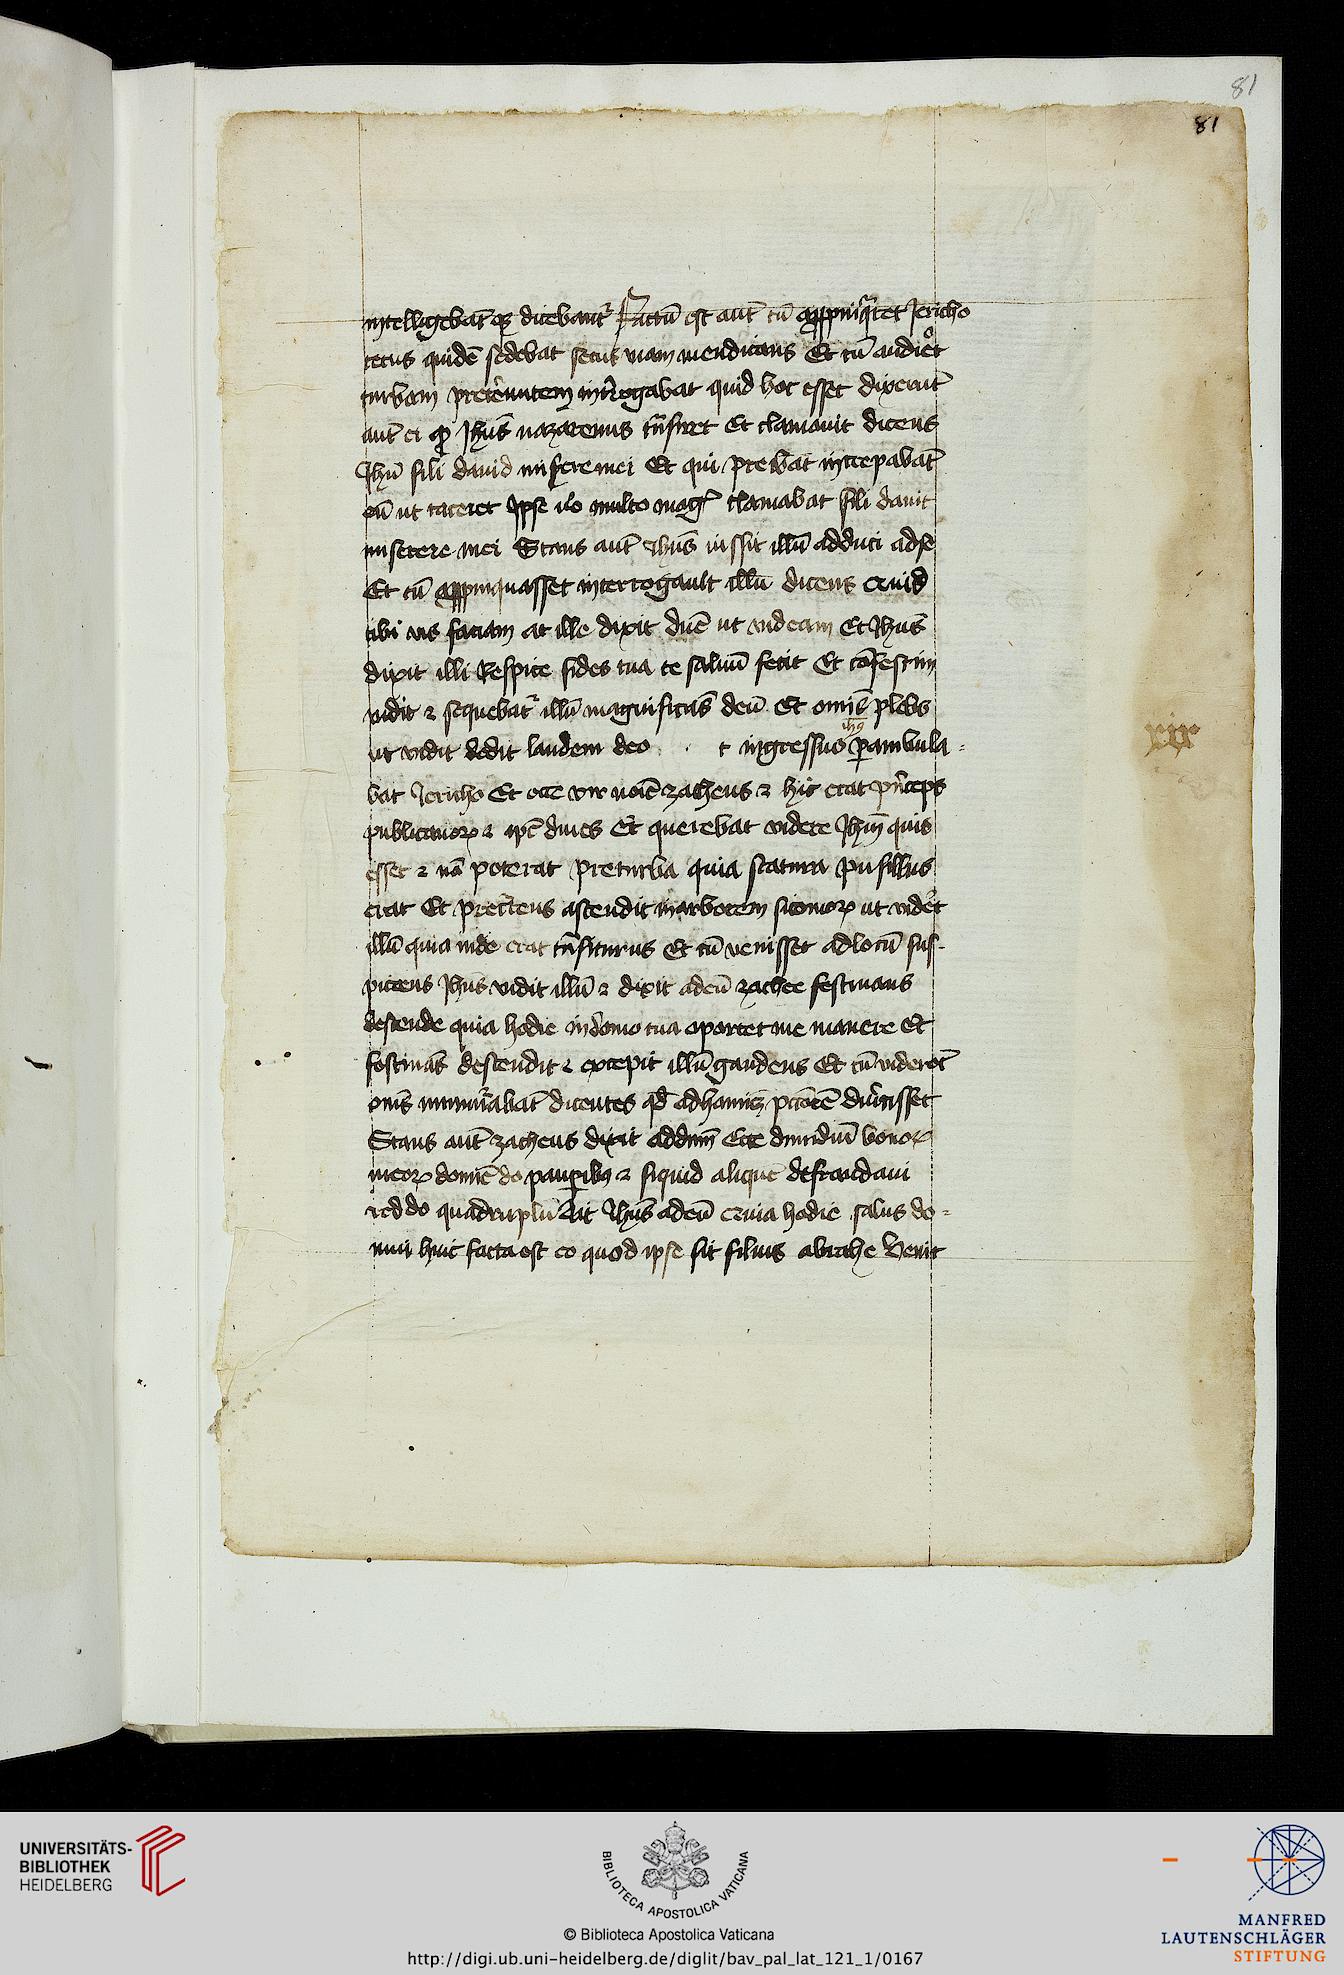 81
81
intelligebāt q̄ dicebant᷑ Factū est aut̄ cū app̄inq̄ret Jericho
cecus quidē sedebat secus viam mendicans Et cū audiret
turbam pretereuntem int̄rogabat quid hoc esset dixerūt
aut̄ ei qđ Jhūs nazarenus trāsiret Et clamauit dicens
Jhū fili dauid miserere mei Et qui preibāt increpabāt
eū ut taceret Jpse v̄o multo mag᷑ clamabat fili dauit
miserere mei Stans aut̄ Jhūs iussit illū adduci adse
Et cū app̄inquasset interrogauit illū dicens Quid
tibi vis faciam at ille dixit dn̄e ut videam Et Jhūs
dixit illi Respice fides tua te saluū fecit Et cōfestim
vidit ⁊ sequebat᷑ illū magnificās deū Et omīs plebs
jhs
ut vidit dedit laudem deo t ingressus ꝑambula
bat Jericho Et ecce vir noīe zacheus ⁊ hic erat pn̄ceps
publicanoꝝ ⁊ ip̄e diues Et querebat videre Jhm̄ quis
esset ⁊ nō poterat preturba quia statura pusillus
erat Et precurrens ascendit inarborem sicomoꝝ ut videret
illū quia inde erat trāsiturus Et cū venisset adlocū sus-
piciens Jhūs vidit illū ⁊ dixit adeū zachee festinans
descende quia hodie indomo tua oportet me manere Et
festinās descendit ⁊ excepit illū gaudens Et cū viderēt
om̄s murmurabāt dicentes qđ adhomīē pctōrē diūtisset
Stans aut̄ zacheus dixit addnm̄ Ecce dimidiū bonoꝝ
meoꝝ domīe do pauꝑibꝰ ⁊ siquid aliquē defraudaui
reddo quadruplū Ait Jhūs adeū Quia hodie salus do-
mui huic facta est eo quod ipse sit filius abrahe Venit
xix
UNIVERSITÄTS-
BIBLIOTHEK
HEIDELBERG
BIBLIOTECA APOSTOLICA VATICANA
© Biblioteca Apostolica Vaticana
http://digi.ub.uni-heidelberg.de/diglit/bav_pal_lat_121_1/0167
MANFRED
LAUTENSCHLÄGER
STIFTUNG